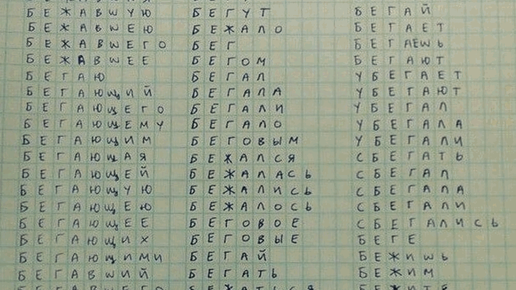 БЕЖАВШУЮ
БЕЖАВШЕЮ
БЕЖАВШЕГО
БЕЖАВШЕЕ
БЕГАЮ
БЕГАЮЩИЙ
БЕГАЮЩЕГО
БЕГАЮЩЕМУ
БЕГАЮЩИМ
БЕГАЮЩАЯ
БЕГАЮЩЕЙ
БЕГАЮЩУЮ
БЕГАЮЩЕЮ
БЕГАЮЩЕЕ
БЕГАЮЩИХ
БЕГАЮЩИМИ
БЕГАВШИЙ
БЕГУТ
БЕЖАЛО
БЕГ
БЕГОМ
БЕГАЛ
БЕГАЛА
БЕГАЛИ
БЕГАЛО
БЕГОВЫМ
БЕЖАЛСЯ
БЕЖАЛАСЬ
БЕЖАЛИСЬ
БЕЖАЛОСЬ
БЕГОВОЕ
БЕГОВЫЕ
БЕГАЙ
БЕГАТЬ
БЕЖАТЬСЯ
БЕГАЙ
БЕГАЕТ
БЕГАЕШЬ
БЕГАЮТ
УБЕГАЕТ
УБЕГАЮТ
УБЕГАЛ
УБЕГАЛА
УБЕГАЛИ
СБЕГАТЬ
СБЕГАЛ
СБЕГАЛА
СБЕГАЛИ
СБЕГАЛИСЬ
БЕГЕ
БЕЖИШЬ
БЕЖИМ
БЕЖИТЕ